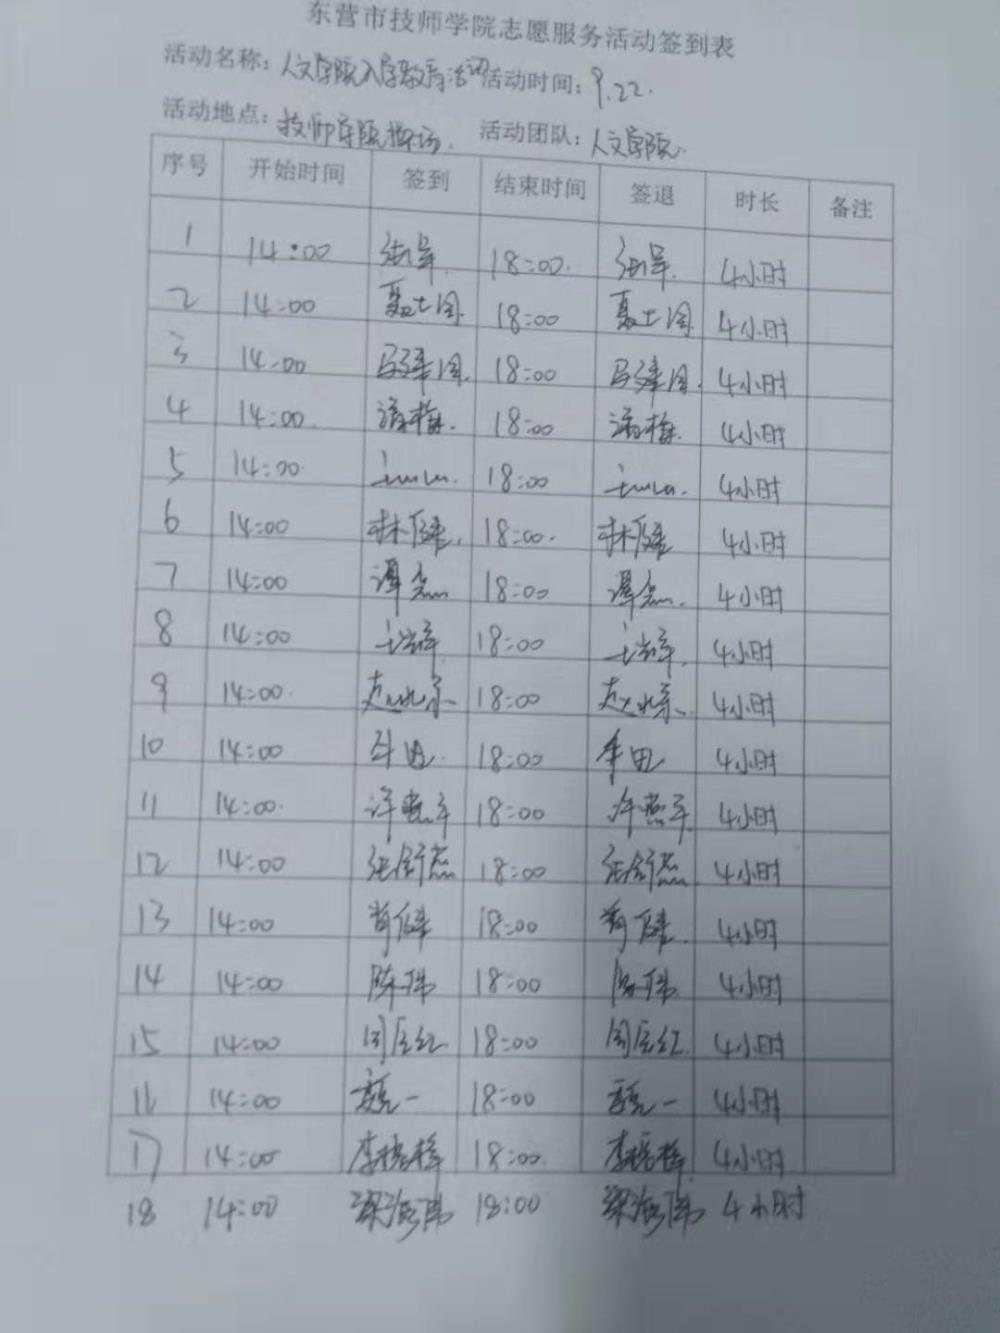 东营市技师学院志愿服务活动签到表
活动名称：人文学院入学教育活动 活动时间：9.22.
活动地点：技师学院操场. 活动团队：人文学院.
序号 开始时间 签到 结束时间 签退 时长 备注
1 14:00 18:00. 4小时
2 14:00 聂士国. 18:00 聂士国 4小时
3 14:00 马建国. 18:00 马建国. 4小时
4 14:00. 潘梅. 18:00 潘梅. 4小时
5 14:00. 18:00 4小时
6 14:00 林健. 18:00. 林健 4小时
7 14:00 谭杰 18:00 谭杰. 4小时
8 14:00 18:00 4小时
9 14:00. 18:00 4小时
10 14:00 18:00 4小时
11 14:00. 许燕平 18:00 许燕平. 4小时
12 14:00 张舒杰 18:00 张舒杰 4小时
13 14:00 肖健 18:00 肖健. 4小时
14 14:00 陈伟 18:00 陈伟. 4小时
15 14:00 18:00 4小时
16 14:00 18:00 4小时
17 14:00 李晓梅 18:00. 李晓梅 4小时
18 14:00 梁海伟 18:00 梁海伟 4小时